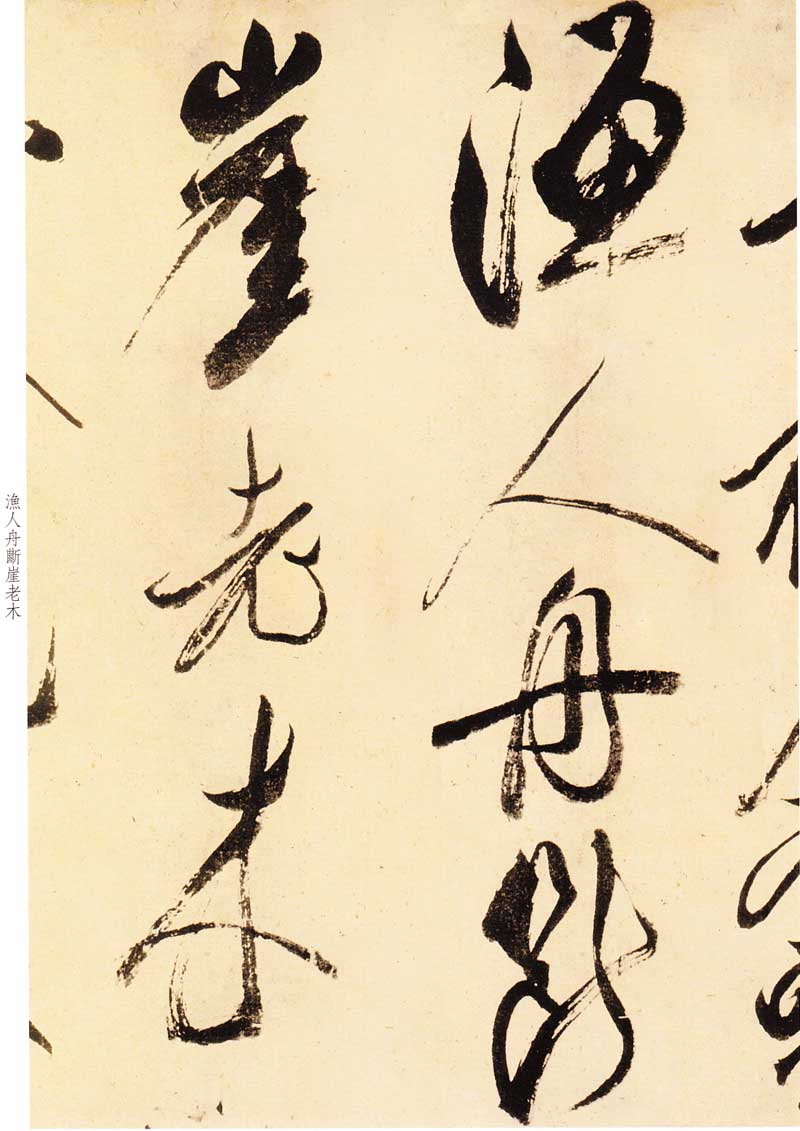 漁人舟斷
崖老木
漁人舟斷崖老木